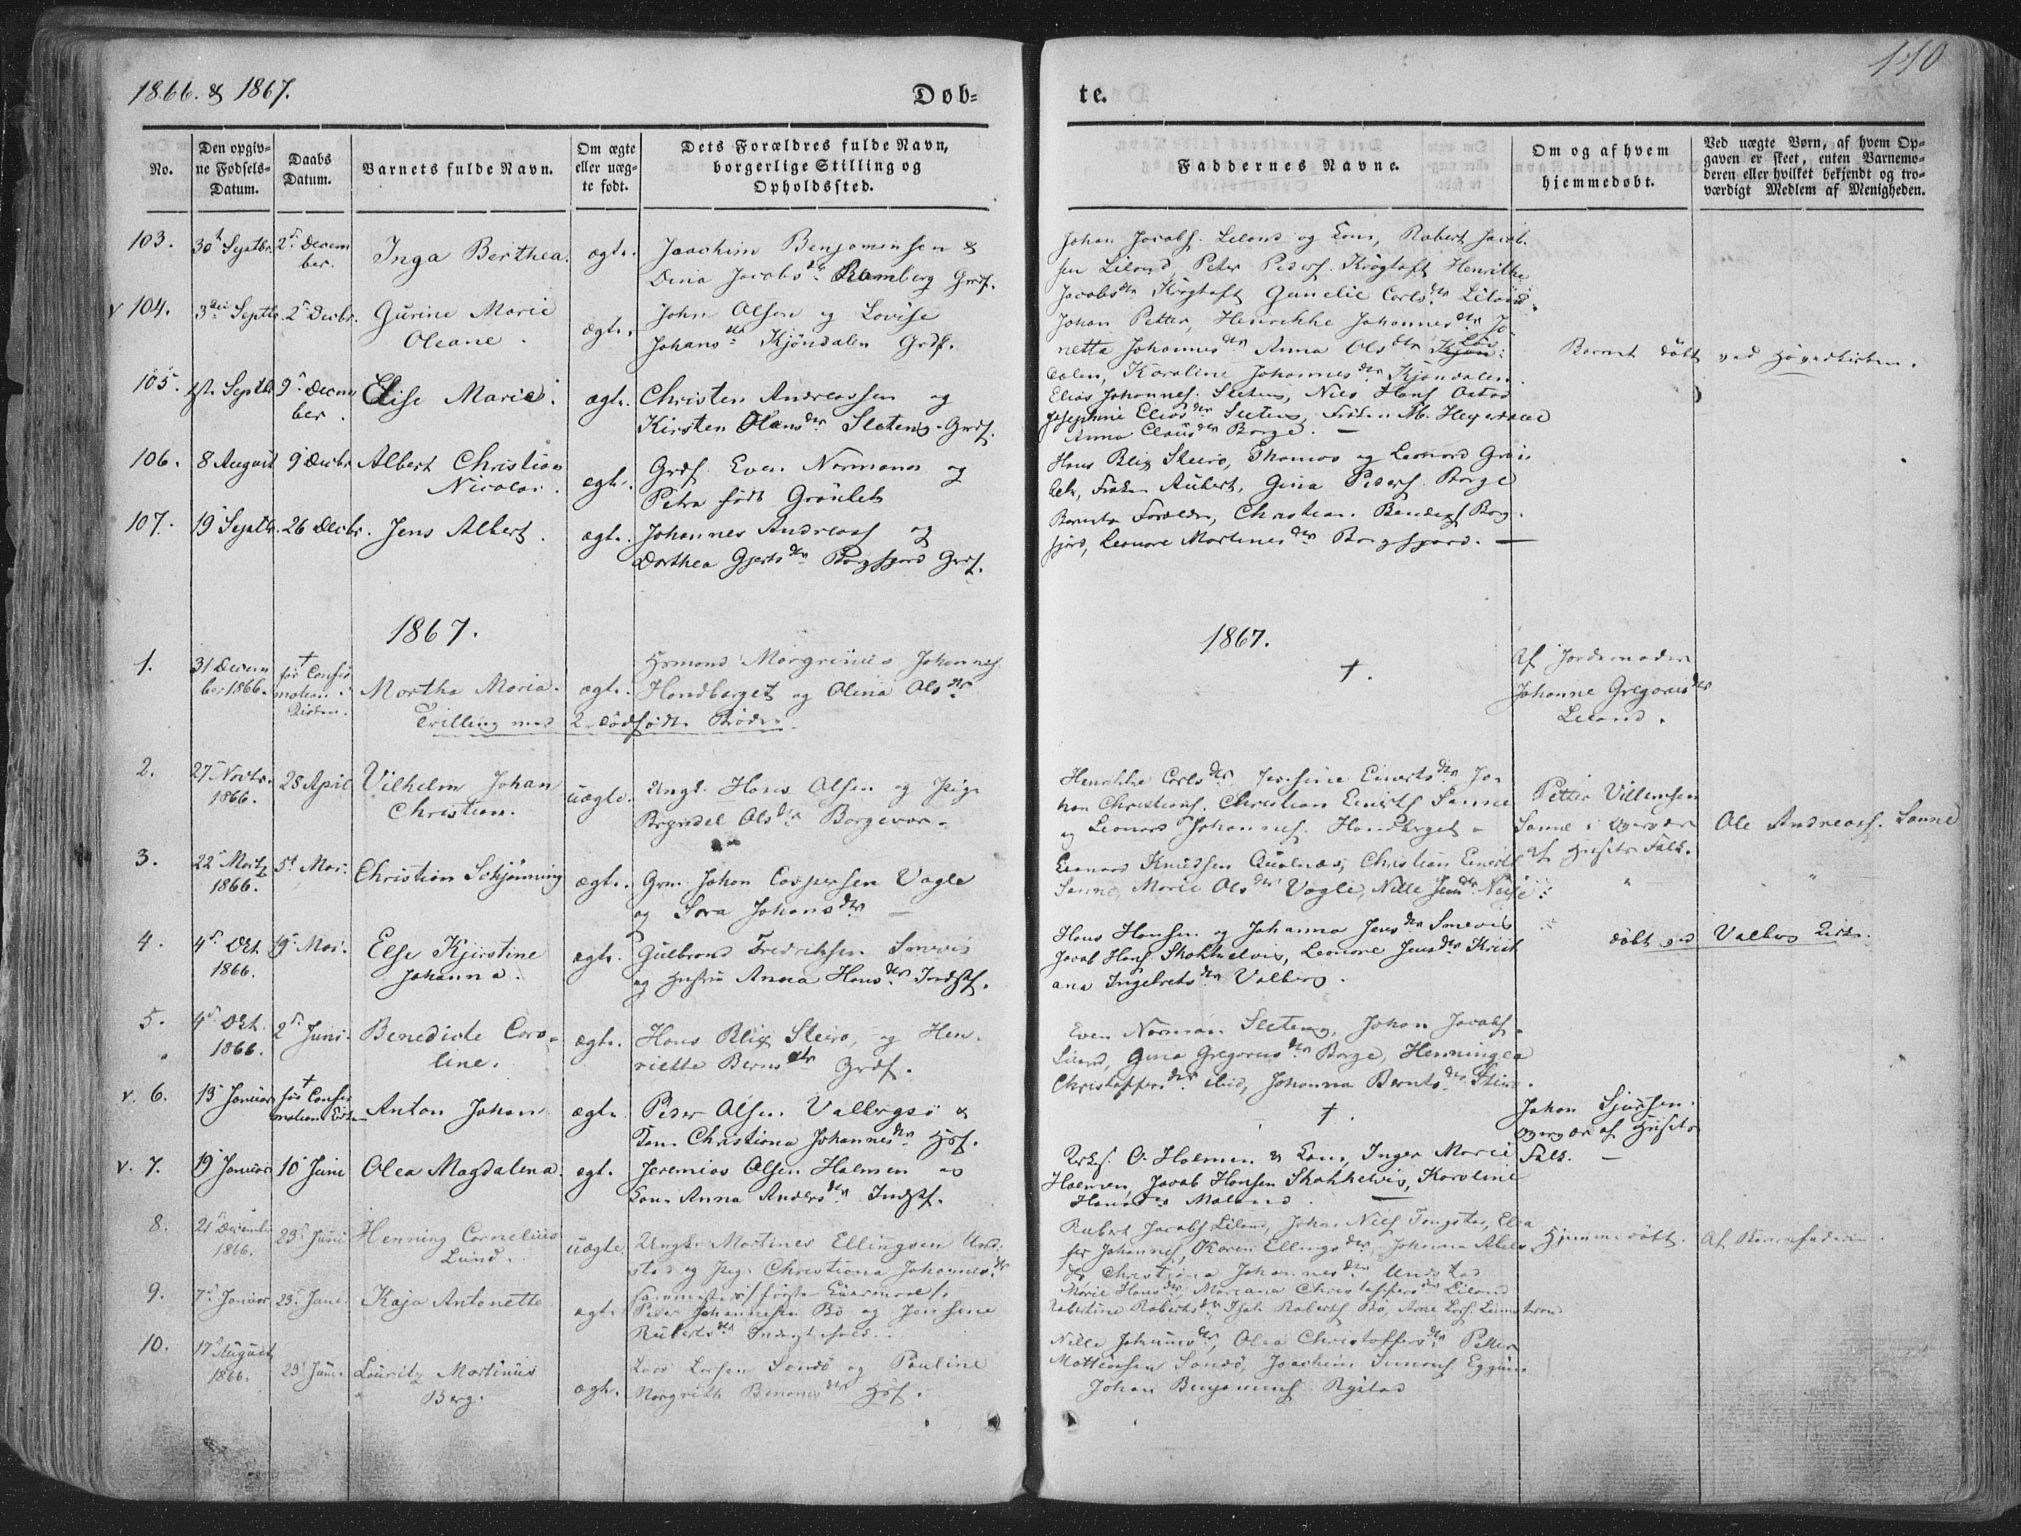 1866. & 1867.
Døb=
te.
110
No.
Den opgiv=
ne Fødsels=
Datum.
Daabs
Datum.
Barnets fulde Navn.
Om ægte
eller uæg=
te født.
Dets Forældres fulde Navn,
borgerlige Stilling og
Opholdssted.
Faddernes Navne.
Om og af hvem
hjemmedøbt.
Ved uægte Børn, af hvem Op=
gaven er skeet, enten Barnemo=
deren eller hvilket bekjendt og tro=
værdigt Medlem af Menigheden.
103.
30t Septbr.
2d Decem
ber.
Inga Berthea.
ægte.
Joachim Benjaminsen &
Dina Jacobsdr Ramberg Grdf.
Johan Jacobs. Leland og Kone, Robert Jacob
sen Lilond, Peter Peders. Krogtoft Henrikke
Jacobsdtr Krogtoft Gunelie Carlsdr Lilond
v 104.
3die Septbr.
2d Decbr.
Gurine Marie
Oleane.
ægte.
John Olsen og Lovise
Johansdr Kjöndalen Grdf.
Johan Petter, Henrikke Johannesdtr Jo
netta Johannesdr Anna Olsdtr Kjön
dalen, Karoline Johannesdtr Kjöndalen.
Barnet döbt ved Hovedkirken.
105.
Septbr
9d Decem
ber.
Elise Marie.
ægte.
Christen Andreassen og
Kirsten Hansdtr Sleteng Grdf.
Elias Johannes. Sleteng, Nils Hans
Josephine Eliasdtr Sleteng, Fröken M. Heyerdahl
Anna Claüsdtr Borge. —
106.
8 August
9d Decbr
Albert Christian
Nicolai.
ægte.
Grdf. Even Normann og
Petra født Grönlek
Hans Blix Steirö, Thomas og Leonard Grön
lek, Fröken Aubert, Gina Peders. Borge
107.
19d Septbr.
26 Decbr.
Jens Albert.
ægte.
Johannes Andreass og
Dorthea Gjertsdtr Borgfjord Grdf.
Barnets Forældre, Christian Bendixs Borg
fjord, Leonore Martinesdtr Borgfjord. —
1867.
1867.
1.
31 Decem
ber 1866.
†
før Confir
mation i
Kirken.
Martha Maria.
ægte.
Hrmand Margrinus Johannes
Handberget og Olina Olsdtr
Trilling med 2 dödfödte Brödre.
†.
Af Jordemoder
Johanne Gregoriusdtr
Leland.
2.
27d Novbr.
1866.
28 April
Vilhelm Johan
Christian.
uægte.
Ungk. Hans Olsen og Pige
Bergedel Olsdtr Borgevær.
Henrikke Carlsdtr, Josefine Einertsdtr Jo
han Christians. Christian Einerts Sanne
og Leonard Johannes. Handberget -
Petter Villumsen
Sanne i
af Huset Falk.
Ole Andreass. Sanne
3.
22d Martz
1866.
5t Mai
Christian Schjönning
ægte.
Grm. Johan Caspersen Vagle
og Sara Johansdtr —
Leonard Knudsen Qualnæs, Christian Einerts
Sanne, Marie Olsdtr Vagle, Nille
"
"
4.
4d Okt.
1866.
19d Mai
Else Kjirstine
Johanna.
ægte.
Gulbrand Fredriksen Smevis
og Hustru Anna Hansdtr Indstf.
Hans Hansen og Johanna Jensdtr Smevis
Jacob Hans Skokkelvis, Leonore Jensdtr Krist
ana Ingebretsdtr Valberg.
döbt ved Valberg Kirke.
5.
4d Okt.
1866.
2d Juni
Benedicte Caro-
line.
ægte.
Hans Blix Steirö, og Hen
riette Berntsdtr Grdf.
Even Norman Sleteng, Johan Jacobs
Leland, Gina Gregoriusdtr Borge, Henningea
Christoffersdtr ibid, Johanna Berntsdtr Stein.
v. 6.
13 Januar
†
før Confir
mation
Anton Johan
ægte
Peder Olsen Valbergsö &
Kone Christiana Johannesdtr Hsf.
†.
Johan Sjursen
af Huset
Falk. —
v. 7.
19 Januar
10 Juni
Olea Magdalena.
ægt.
Jeremias Olsen Holmen og
Kone Anna Andersdtr Indstf.
O. Holmen & Kone, Inger Marie
Holmen, Jacob Hansen Skokkelvis, Karoline
Hansdtr Moland.
8.
21 December
1866.
23d Juni
Henning Cornelius
Lund.
uægte
Ungk. Martines Ellingsen Und
stad og Pige Christiana Johannesdtr
sammesteds første Leiermaal
Robert Jacobs Liland, John Niels Tangstad, Elea
ser Johannes, Karen Ellingsdtr, Johanna Abels
dtr Christiana Johannesdtr Undstad
Hjemmedöbt.
Af Barnefaderen.
9.
7d Januar
23d Juni
Kaja Antonette
ægte
Peder Johannesen Bö og Jensine
Robertsdtr
Marie Hansdtr, Mariana Christoffersdtr Liland
Robertine Robertsdtr, Isak Roberts Bö, Arne Lars. Leinstrand
10.
17d August
1866.
23d Juni
Louritz Martinus
Berg.
ægte.
Lars Larsen Sandö og Pauline
Margrith Benonisdtr Hsf.
Nille Johannesdtr, Olea Christoffersdtr Petter
Mathiasen Sandö, Joachim Simons Eggum
Johan Benjamins Rystad